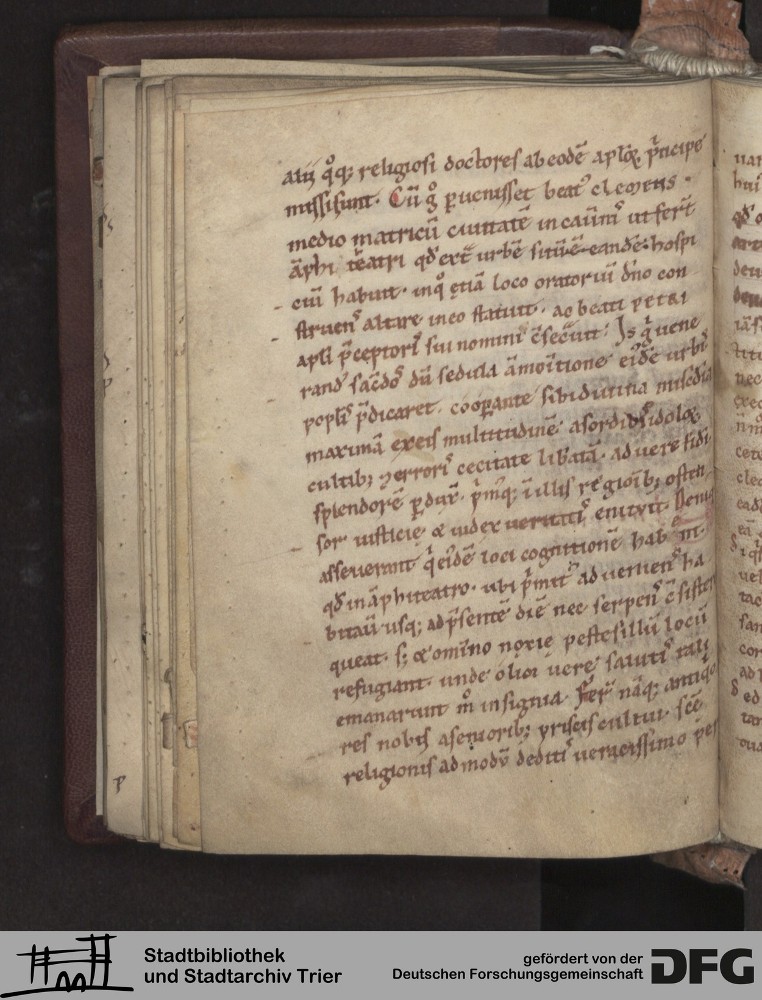 alij q̊q; religiosi doctores ab eodē aplōꝝ p̄ncipe
missi sunt. Cū g̊ puenisset beat᷒ clemens.
medio matricū ciuitatē in cauīnis ut fert̄
āphi teatri qd̄ ext̄ urbē sitū ē eandē hospi
ciū habuit. inq̊ etiā loco oratoriū dn̄o con
struens altare in eo statuit. ac beati petri
apli p̄ceptoris sui nomini c̄secuit. Is g̊ uene
rand᷒ sac̄dos dū sedula āmonitione eidē urbis
poplis p̄dicaret. cooꝑante sibi diuina mīscdia
maximā ex eis multitudinē. a sordib; idoloꝝ
cultib; ⁊ erroris cecitate libatā. ad uere fidi
splendorē ꝑdux̄. p̄mq; ī illis regionib; osten
sor iusticie. & iudex ueritatis enituit. Denic
asseuerant q̄ eidē loci cognitionē hab̄ nt.
qd̄ in āphiteatro. ubi p̄mit᷒ adueniens ha
bitau̅ usq; ad p̄sentē diē nec serpens c̄sister
queat. s; & om̄ino noxie pestes illū locū
refugiant. unde olim uere salutis tali
emanarunt m̊ insignia. Fer̄ nāq; antiq̊
res nobis a senioribꝫ priscis cultui scē
religionis admodū dediti ueruessimo pes
p
Stadtbibliothek
und Stadtarchiv Trier
gefördert von der
Deutschen Forschungsgemeinschaft
DFG